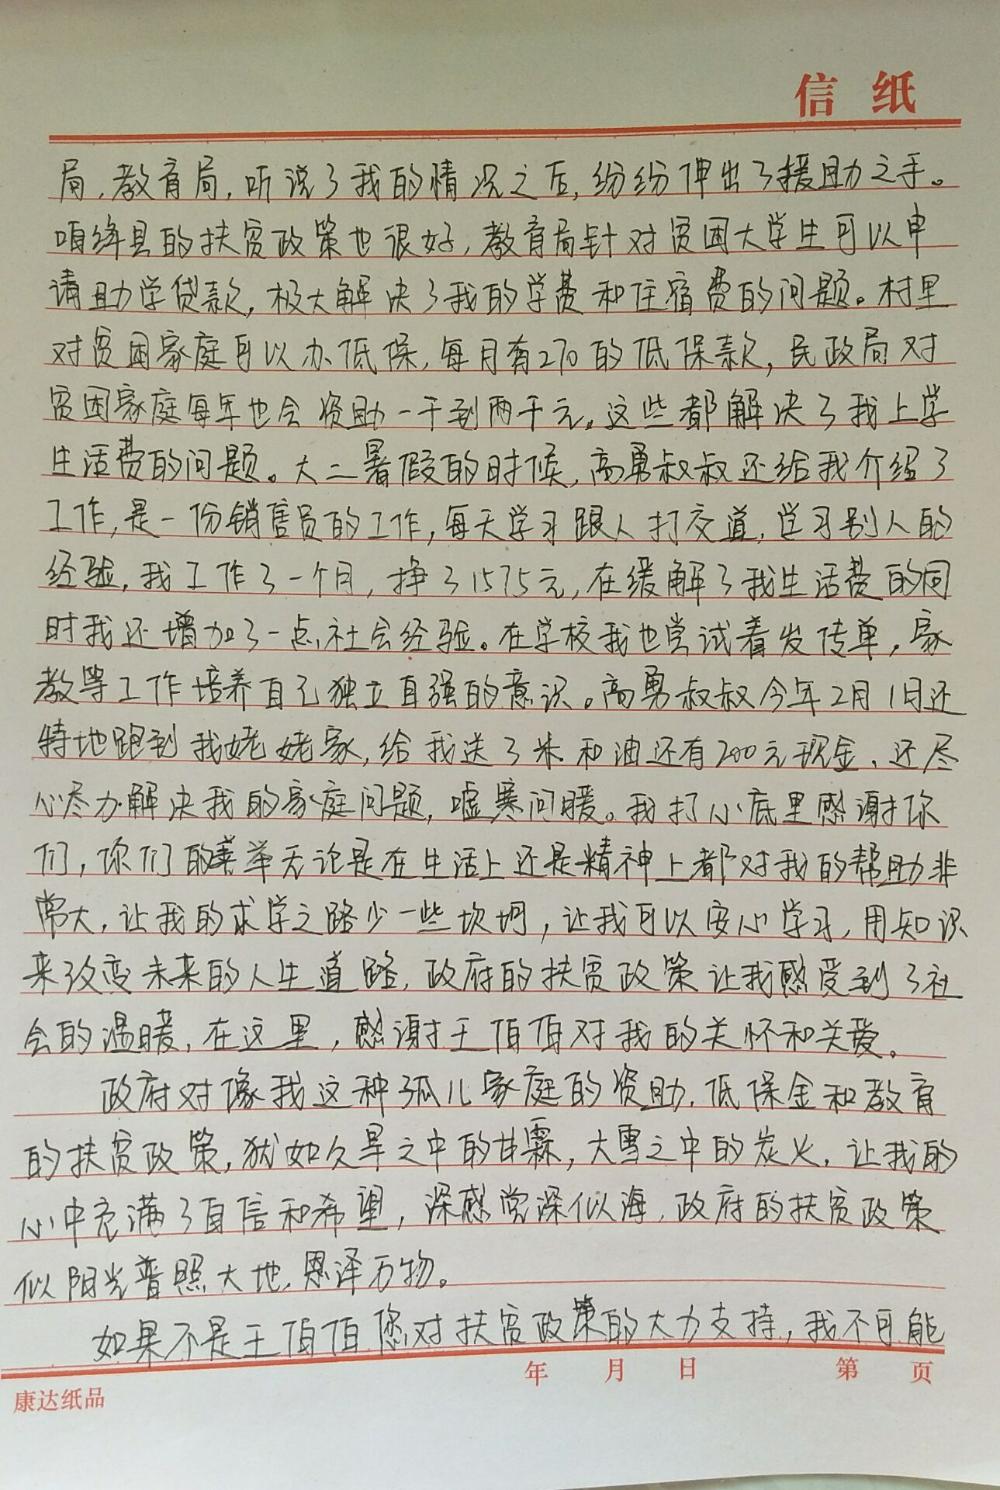 信 纸
局,教育局,听说了我的情况之后,纷纷伸出了援助之手。
咱绛县的扶贫政策也很好,教育局针对贫困大学生可以申
请助学贷款,极大解决了我的学费和住宿费的问题。村里
对贫困家庭可以办低保,每月有270的低保款,民政局对
贫困家庭每年也会资助一千到两千元。这些都解决了我上学
生活费的问题。大二暑假的时候,高勇叔叔还给我介绍了
工作,是一份销售员的工作,每天学习跟人打交道,学习别人的
经验,我工作了一个月,挣了1575元,在缓解了我生活费的同
时我还增加了一点社会经验。在学校我也尝试着发传单,家
教等工作培养自己独立自强的意识。高勇叔叔今年2月1日还
特地跑到我姥姥家,给我送了米和油还有200元现金、还尽
心尽力解决我的家庭问题,嘘寒问暖。我打心底里感谢你
们,你们的善举无论是在生活上还是精神上都对我的帮助非
常大,让我的求学之路少一些坎坷,让我可以安心学习,用知识
来改变未来的人生道路,政府的扶贫政策让我感受到了社
会的温暖,在这里,感谢王伯伯对我的关怀和关爱。
政府对像我这种孤儿家庭的资助,低保金和教育
的扶贫政策,犹如久旱之中的甘霖,大雪之中的炭火,让我的
心中充满了自信和希望,深感党深似海,政府的扶贫政策
似阳光普照大地,恩泽万物。
如果不是王伯伯您对扶贫政策的大力支持,我不可能
年 月 日 第 页
康达纸品